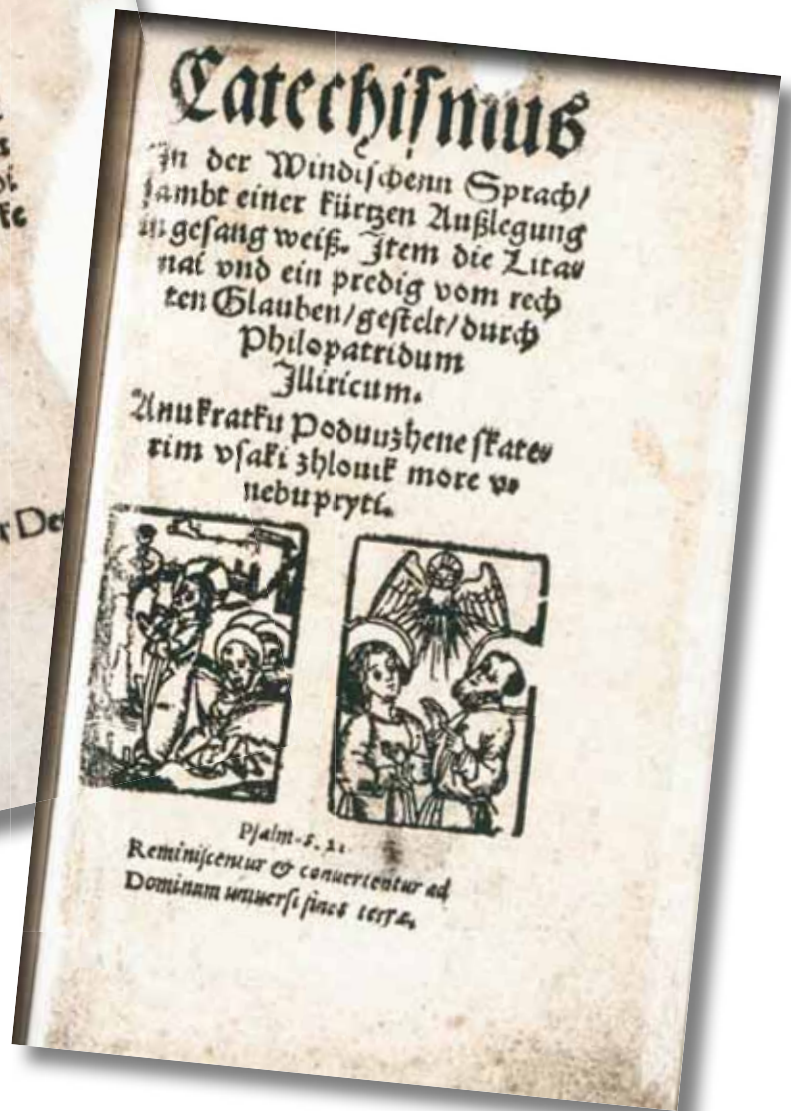 Catechiſmus
In der Windiſchenn Sprach/
ſambt einer kürtzen Außlegung
in geſang weiß. Item die Lita⸗
nai vnd ein predig vom rech
ten Glauben/geſtelt/durch
Philopatridum
Illiricum.
Anu kratku Poduuzhene ſkate⸗
rim vſaki zhlouik more v⸗
nebu pryti.
Pſalm.
Reminiſcentur & conuertentur ad
Dominum vniuerſi fines terræ.
r De